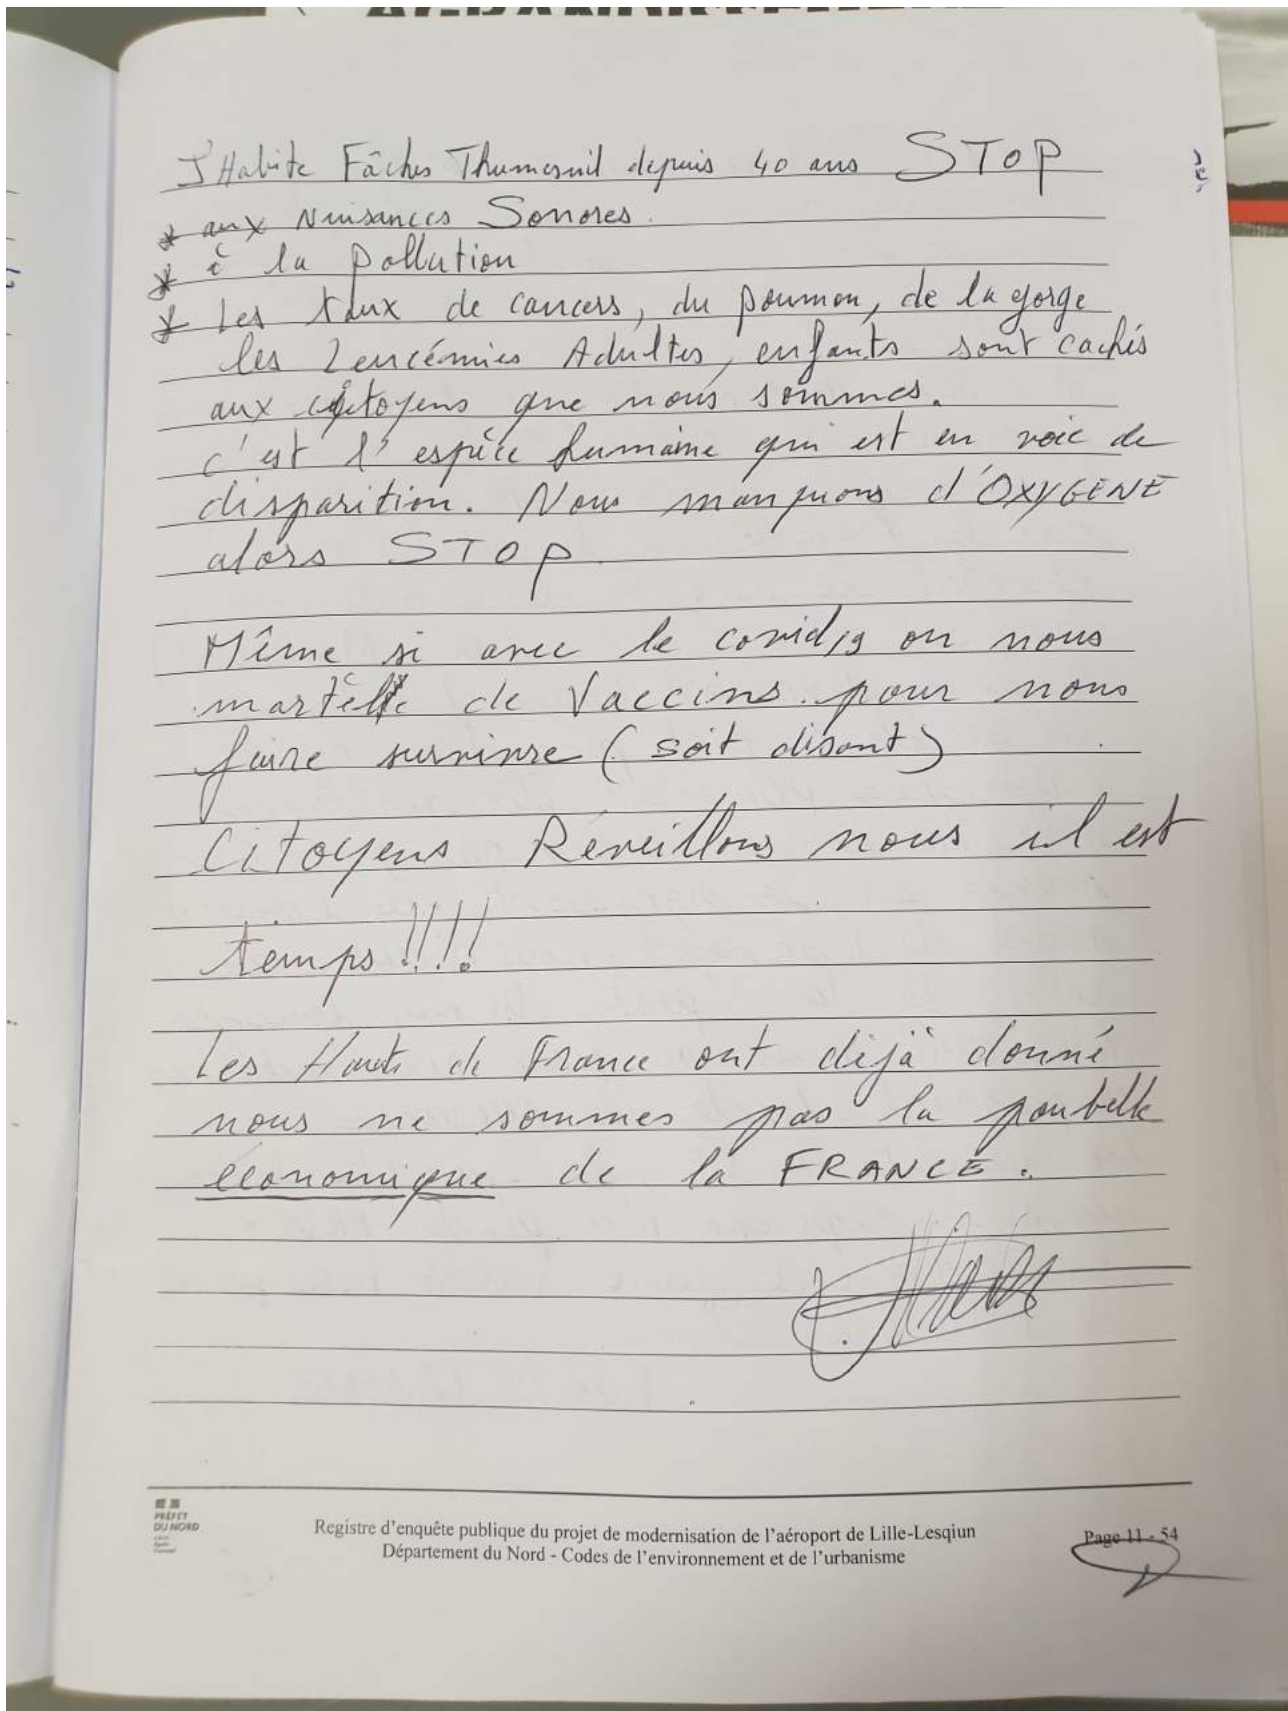 J Habite Fâches Thumesnil depuis 40 ans STOP
* aux Nuisances Sonores.
* à la pollution
* Les taux de cancers, du poumon, de la gorge
les Leucémies Adultes, enfants sont cachés
aux citoyens que nous sommes.
c'est l'espèce humaine qui est en voie de
disparition. Nous manquons d'OXYGENE
alors STOP
Même si avec le covid19 on nous
martèle de Vaccins pour nous
faire survivre (soit disant)
Citoyens Réveillons nous il est
temps !!!!
Les Hauts de France ont déjà donné
nous ne sommes pas la poubelle
économique de la FRANCE.
PRÉFET
DU NORD
Registre d'enquête publique du projet de modernisation de l'aéroport de Lille-Lesqiun
Département du Nord - Codes de l'environnement et de l'urbanisme
Page 11 - 54